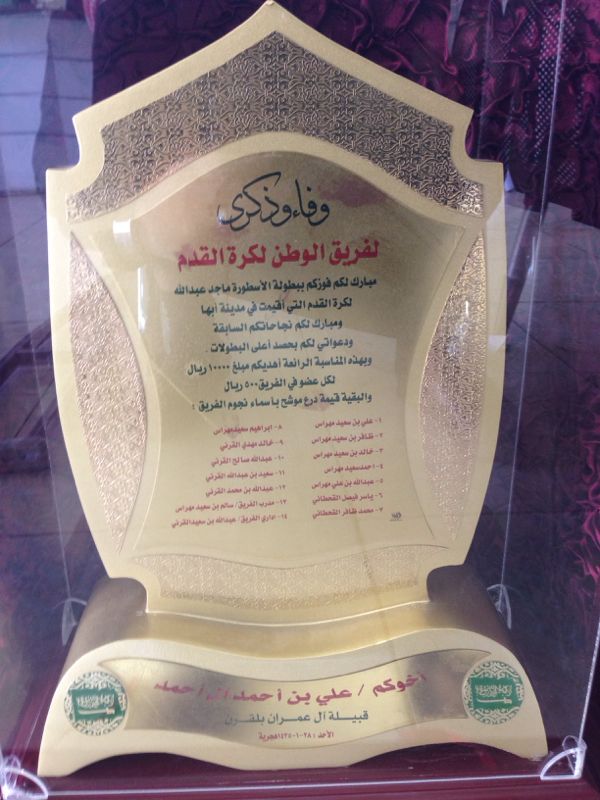 وفاء وذكرى
لفريق الوطن لكرة القدم
مبارك لكم فوزكم ببطولة الأسطورة ماجد عبدالله
لكرة القدم التي أقيمت في مدينة أبها
ومبارك لكم نجاحاتكم السابقة
ودعواتي لكم بحصد أعلى البطولات .
وبهذه المناسبة الرائعة أهديكم مبلغ ١٠٠٠٠ ريال
لكل عضو في الفريق ٥٠٠ ريال
والبقية قيمة درع موشح بأسماء نجوم الفريق :
١- علي بن سعيد مهراس
٢- ظافر بن سعيد مهراس
٣- خالد بن سعيد مهراس
٤- احمد سعيد مهراس
٥- عبدالله بن علي مهراس
٦- ياسر فيصل القحطاني
٧- محمد ظافر القحطاني
٨- ابراهيم سعيد مهراس
٩- خالد مهدي القرني
١٠- عبدالله صالح القرني
١١- سعيد بن عبدالله القرني
١٢- عبدالله بن محمد القرني
١٣- مدرب الفريق/ سالم بن سعيد مهراس
١٤- اداري الفريق/ عبدالله بن سعيد القرني
أخوكم / علي بن أحمد آل أحمد
قبيلة آل عمران بلقرن
الأحد : ٢٨-١-١٤٣٥هجرية